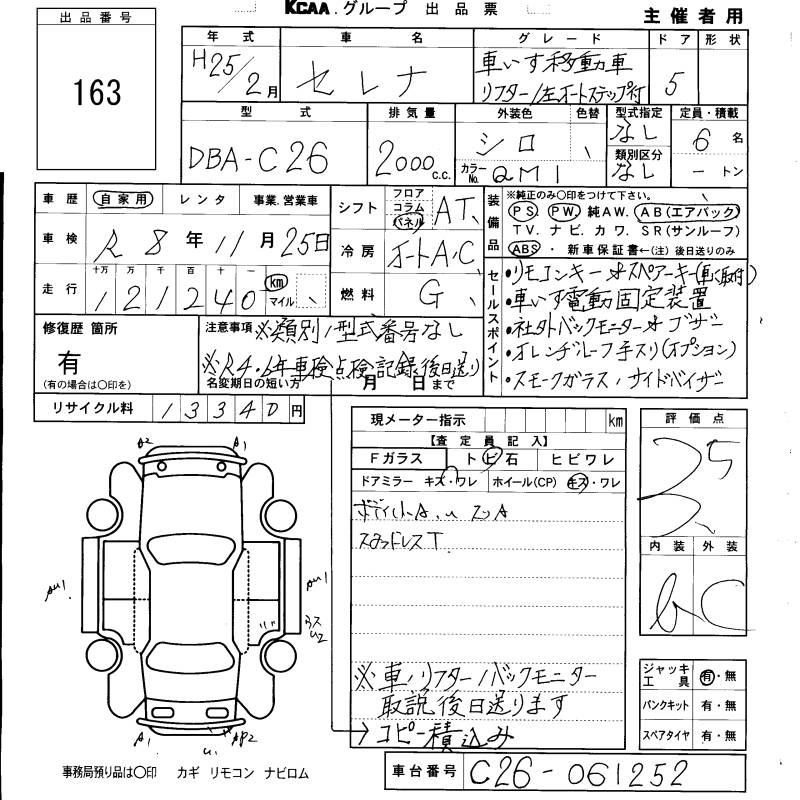 KCAA グループ 出品票
主催者用
出品番号
163
年式 車名 グレード ドア 形状
H25/2月 セレナ 車いす移動車 5
リフター/左オートステップ付
型式 排気量 外装色 色替 型式指定 定員・積載
DBA-C26 2000c.c. シロ なし 6名
カラーNo. QM1 類別区分 なし ートン
車歴 自家用 レンタ 事業.営業車
シフト フロア コラム パネル AT
装備品 ※純正のみ〇印をつけて下さい。
PS PW 純AW. AB(エアバック)
TV. ナビ. カワ. SR(サンルーフ)
ABS ・ 新車保証書←(注)後日送りのみ
車検 R8年11月25日
冷房 オートA/C
走行 十万 万 千 百 十 一
121240 km マイル
燃料 G
セールスポイント
・リモコンキー
・車いす電動固定装置
・社外バックモニター ブザー
・オレンジルーフ手スリ(オプション)
・スモークガラス/サイドバイザー
修復歴 箇所
有
(有の場合は〇印を)
注意事項 ※類別/型式番号なし
※R4.6年車検点検記録後日送り
名変期日の短い方 月 日まで
リサイクル料 13340円
現メーター指示 km
【査定員記入】
Fガラス トビ石 ヒビワレ
ドアミラー キズ・ワレ ホイール(CP) キズ・ワレ
スタッドレスT
評価点
3.5
内装 外装
b C
A2 A1
AU1
AU1
U2
A1 U1 AP2
※車/リフター/バックモニター
取説後日送ります
→コピー積込み
ジャッキ工具 有・無
パンクキット 有・無
スペアタイヤ 有・無
事務局預り品は〇印 カギ リモコン ナビロム
車台番号 C26-061252